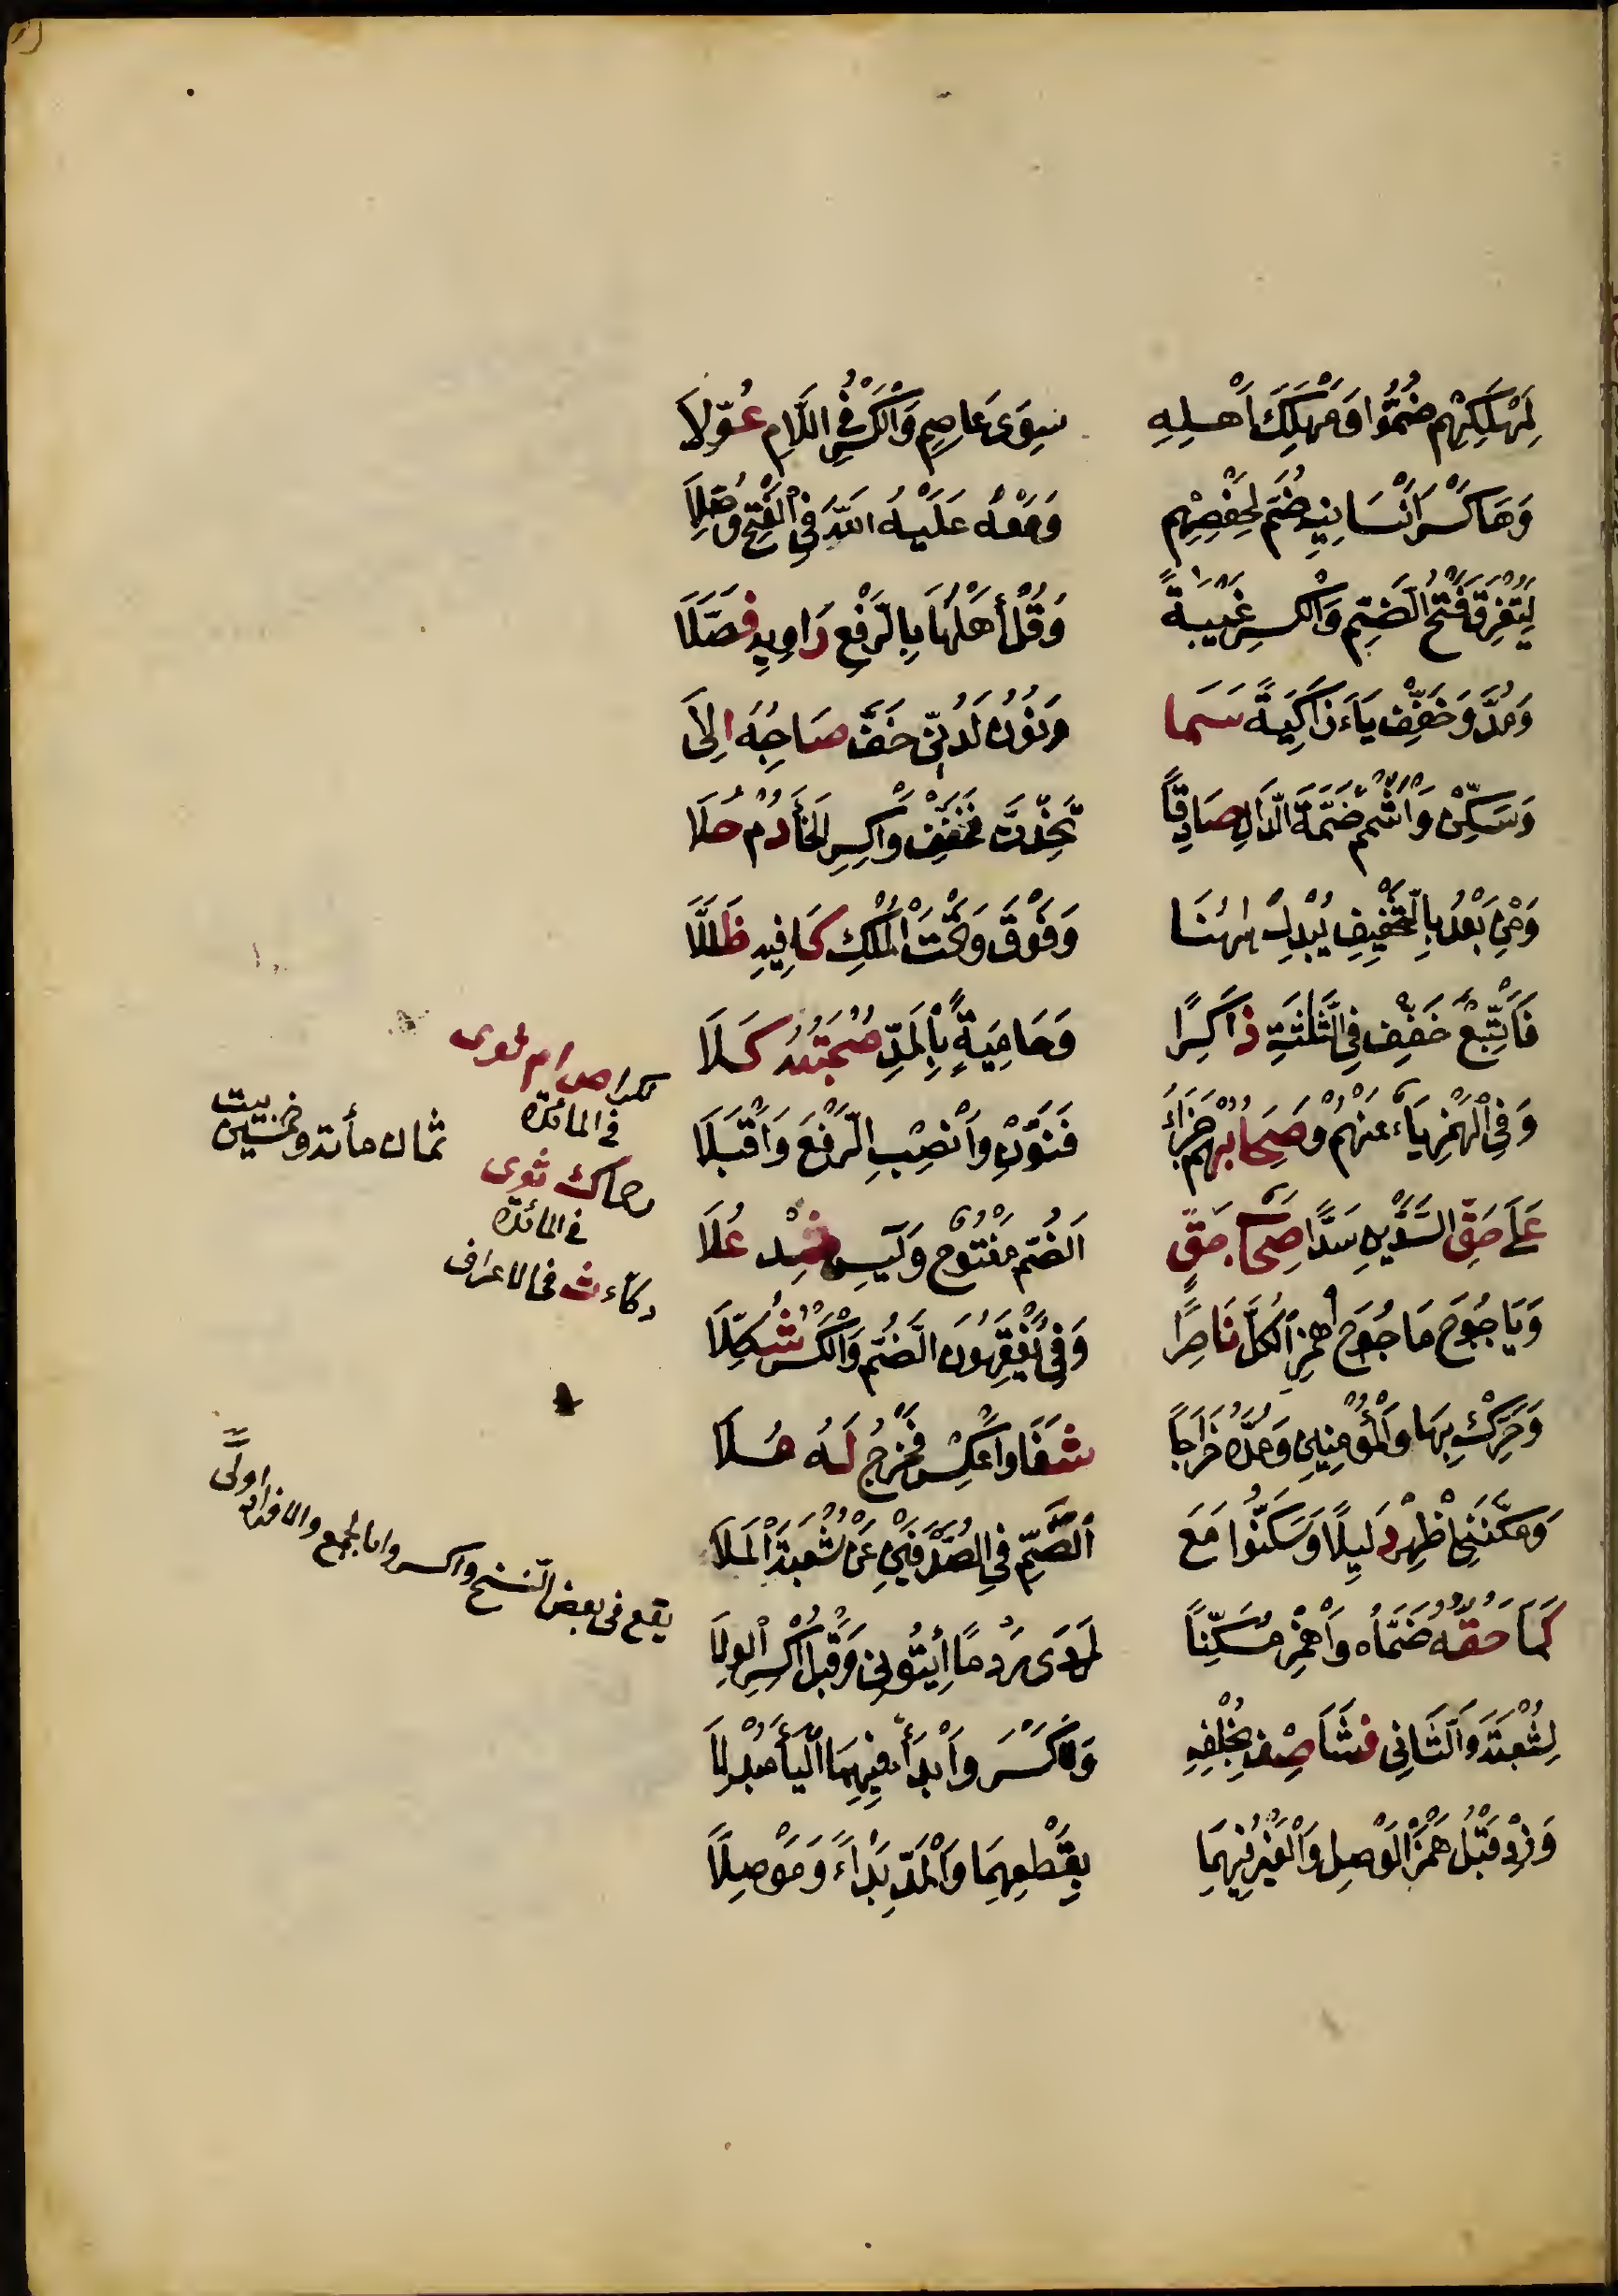 لِمَهْلَكِهِمْ ضَمُّوا وَمَهْلَكَ اَهْلِهِ سِوَى عَاصِمٍ وَالْكَسْرُ فِي اللَّامِ عُوِّلَا
وَهَا كَسْرِ اَنْسَانِيهِ ضُمَّ لِحَفْصِهِمْ وَمَعْهُ عَلَيْهِ اللَّهَ فِي الْفَتْحِ وَصَّلَا
لِتُغْرِقَ فَتْحُ الضَّمِّ وَالْكَسْرِ غَيْبَةً وَقُلْ أَهْلُهَا بِالرَّفْعِ رَاوِيهِ فَصَّلَا
وَمُدَّ وَخَفِّفْ يَاءَ زَاكِيَةً سَمَا وَنُونُ لَدُنِّي خَفَّ صَاحِبُهُ اِلَى
وَسَكِّنْ وَاَشْمِمْ ضَمَّةَ الدَّالِ صَادِقًا تَخِذْتَ فَخَفِّفْ وَاكْسِرِ الْخَاءَ دُمْ حُلَا
وَمِنْ بَعْدُ بِالتَّخْفِيفِ يُبْدِلَ هٰهُنَا وَفَوْقَ وَتَحْتَ الْمُلْكِ كَافِيهِ ظَلَّلَا
فَاَتْبَعَ خَفِّفْ فِي الثَّلٰثَةِ ذَاكِرًا وَحَامِيَةً بِالْمَدِّ صُحْبَتُهُ كَلَا
وَفِي الْهَمْزِ يَاءٌ عَنْهُمْ وَصِحَابُهُمْ جَزَاءُ فَنَوِّنْ وَانْصِبِ الرَّفْعَ وَاقْبَلَا
عَلَى حَقِّ السَّدَّيْنِ سَدًّا صِحَابُ حَقٍّ الضَّمُّ مَفْتُوحٌ وَيٰسِ شِدْ عُلَا
وَيَاجُوجَ مَاجُوجَ اهْمِزِ الْكُلَّ نَاصِرًا وَفِي يُفْقِهُونَ الضَّمُّ وَالْكَسْرُ شُكِّلَا
وَحَرِّكْ بِهَا وَالْمُؤْمِنِينَ وَمُدَّهُ خَرَاجًا شَفَا وَاعْكِسْ فَخَرْجُ لَهُ مُلَا
وَمَكَّنَنِي اَظْهِرْ دَلِيلًا وَسَكَّنُوا مَعَ الضَّمِّ فِي الصُّدْفَيْنِ عَنْ شُعْبَةَ الْمَلَا
كَمَا حَقُّهُ ضَمَّاهُ وَاهْمِزْ مُسَكِّنًا لَدَى رَدْمًا اِيتُونِي وَقَبْلُ اكْسِرِ الْوِلَا
لِشُعْبَةَ وَالثَّانِي فَشَا صِفْ بِخُلْفِهِ وَلَا كَسْرَ وَابْدَأْ فِيهِمَا الْيَاءَ مُبْدِلَا
وَزِدْ قَبْلُ هَمْزَ الْوَصْلِ وَالْغَيْرُ فِيهِمَا بِقَطْعِهِمَا وَالْمَدِّ بَدْاءً وَمَوْصِلَا
نكرا
فى المائدة
ثمان مأئة وخمسين بيت
ثوى
فى المائدة
دكاء ث فى الاعراف
يقع فى بعض النسخ واكسر واما لجمع والافراد اولى